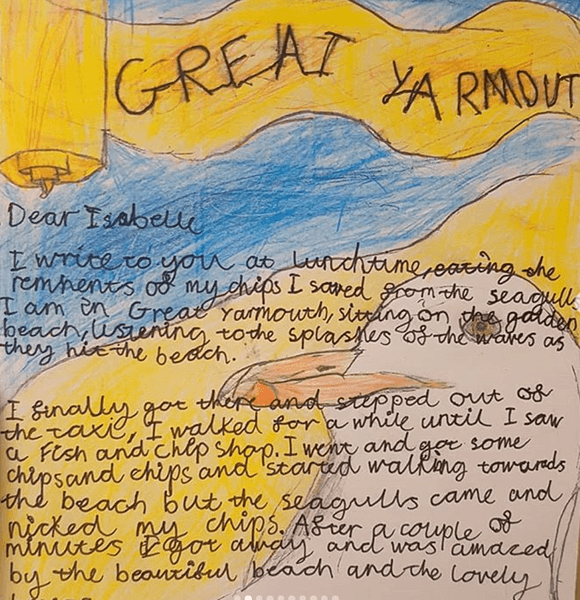 GREAT YARMOUT
Dear Isabelle
I write to you at lunchtime, eating the
remnents of my chips I saved from the seagulls
I am in Great Yarmouth, sitting on the golden
beach, listening to the splashes of the waves as
they hit the beach.
I finally got there and stepped out of
the taxi, I walked for a while until I saw
a Fish and chip shop. I went and got some
chips and chips and started walking towards
the beach but the seagulls came and
nicked my chips. After a couple of
minutes I got away and was amazed
by the beautiful beach and the lovely